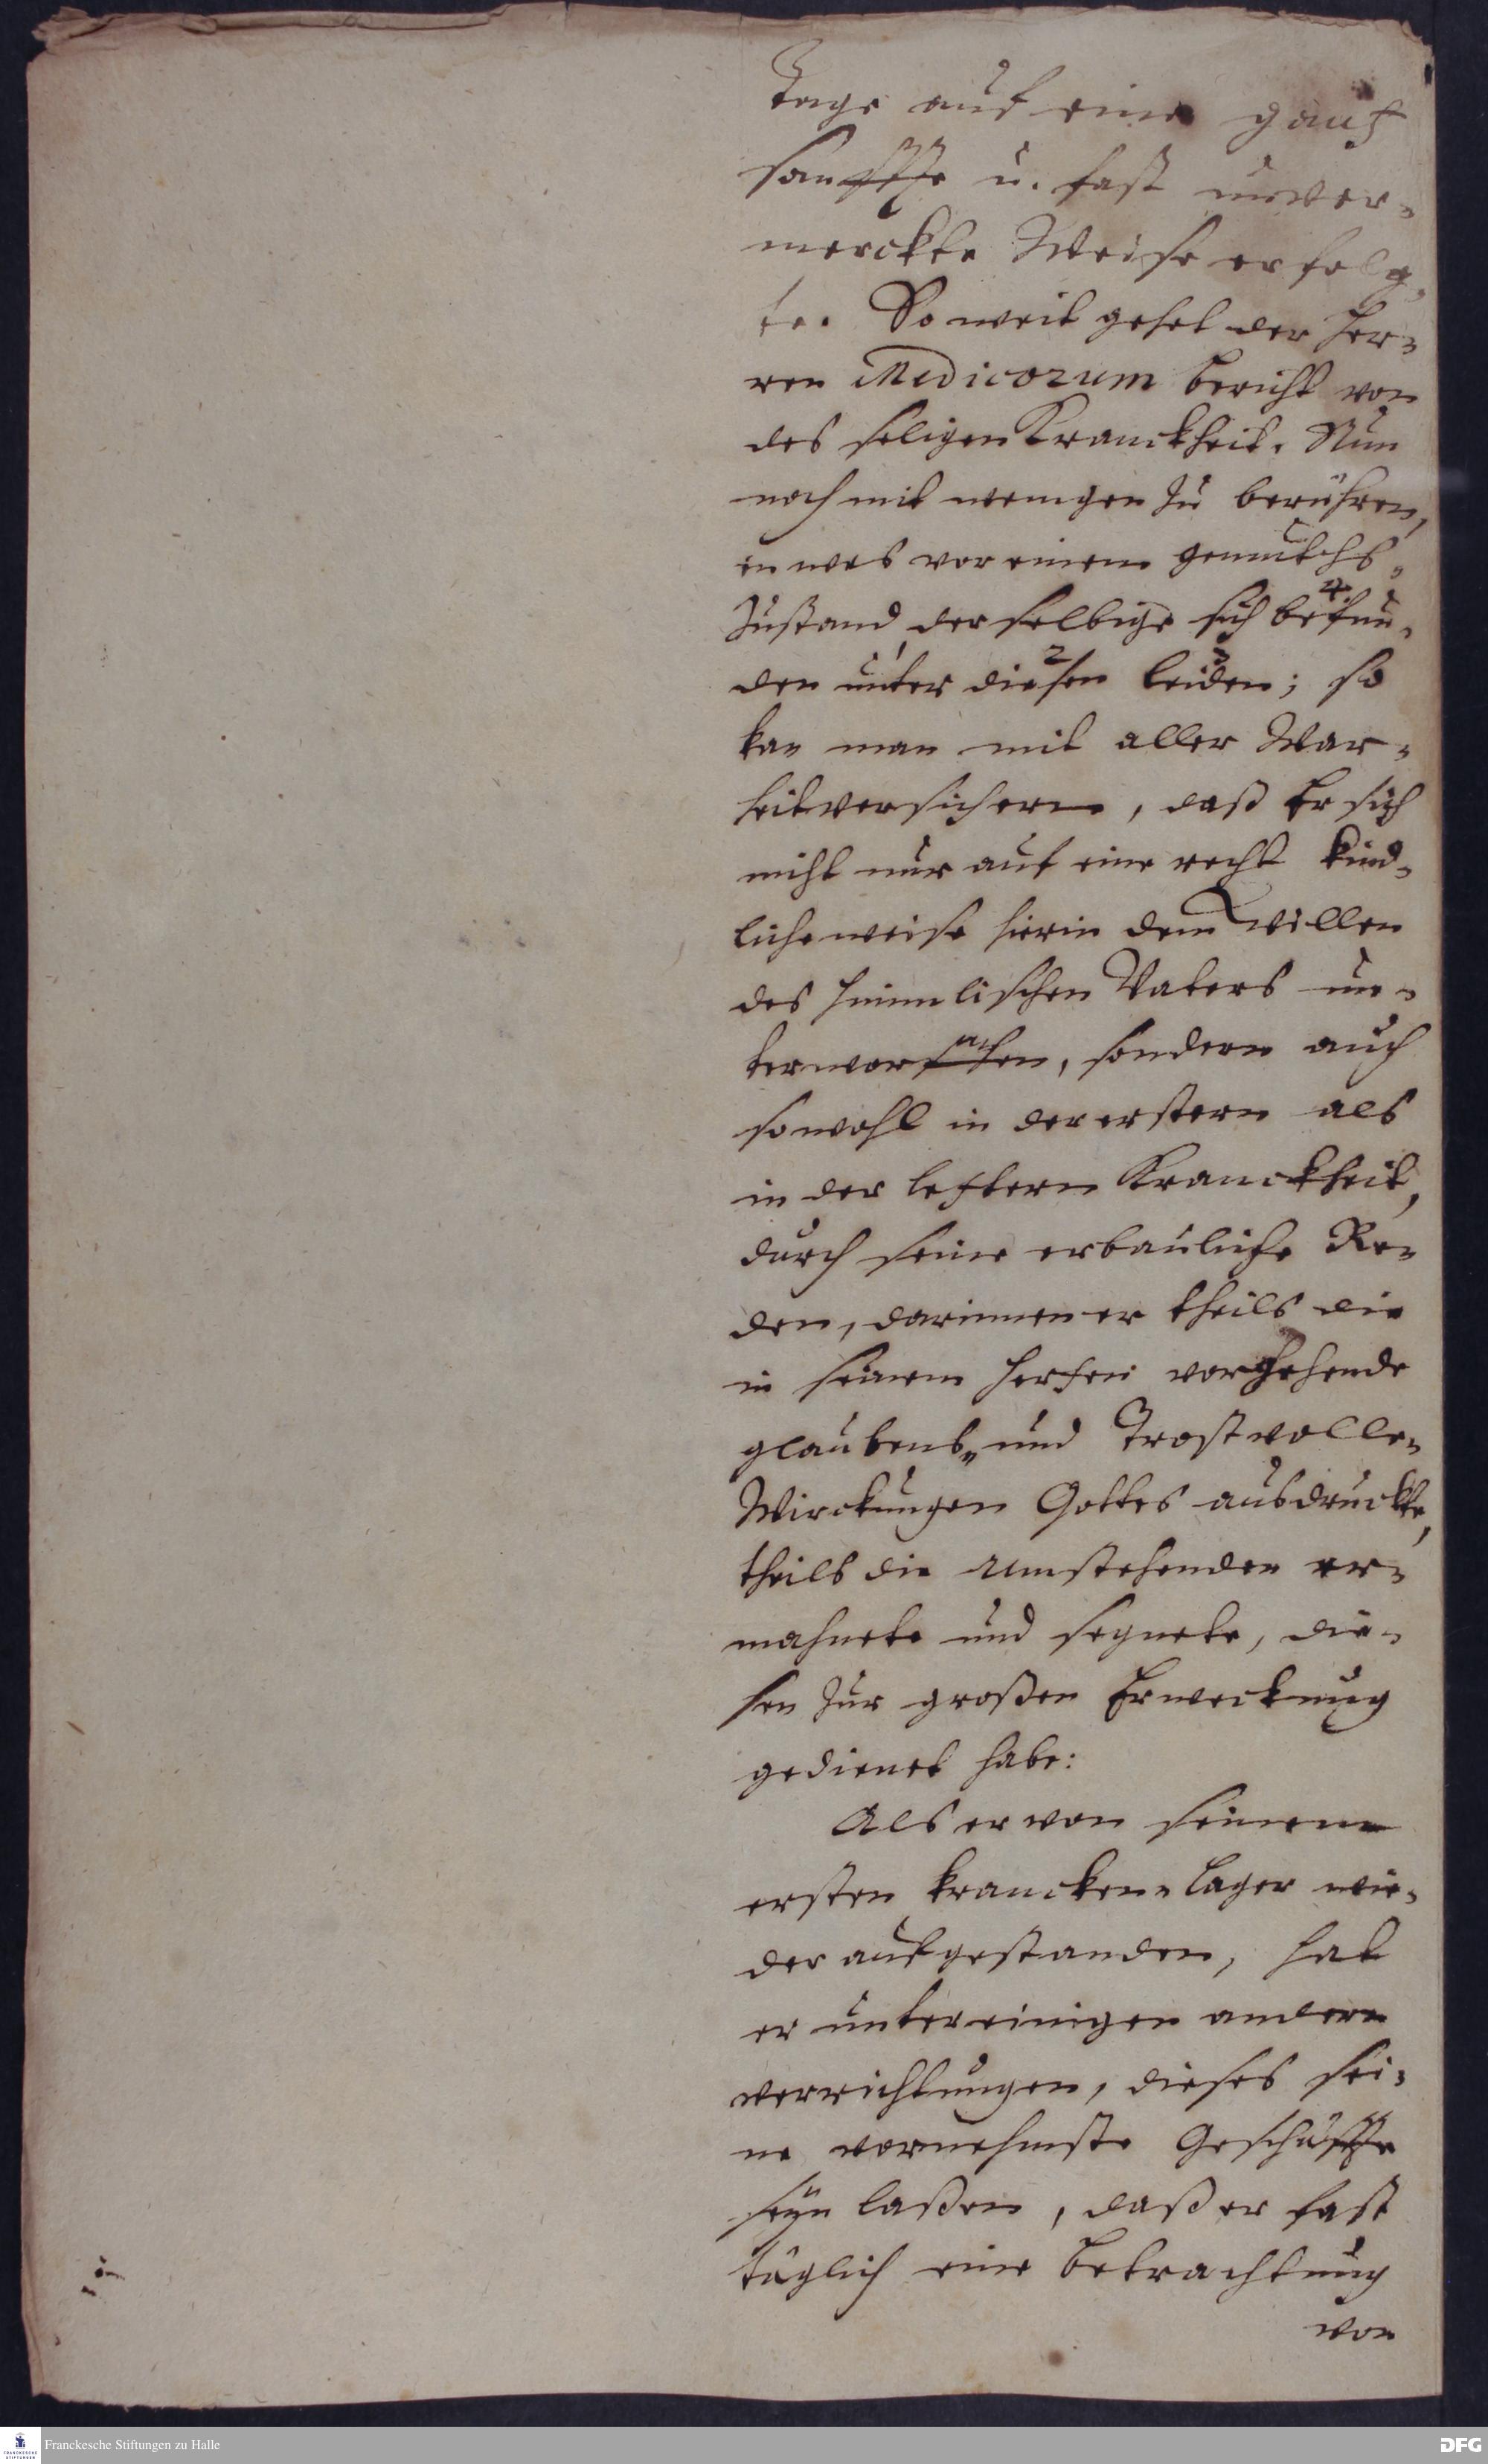 Tage auf eine gantz
sanffte u. fast unver-
merckte Weise erfolg-
te. So weit gehet der Her-
ren Medicorum bericht von
des seligen Kranckheit. Nun
noch mit wenigen zu berühren,
in was vor einem gemüths-
Zustand derselbige sich befun-
4.
den unter diesen leiden; so
1 2 3
kan man mit aller War-
heit versichern, daß Er sich
nicht nur auf eine recht kind-
liche weise hierin dem willen
des himmlischen Vaters un-
terworffen, sondern auch
sowohl in der erstern als
in der letztern Kranckheit,
durch seine erbauliche Re-
den, darinnen er theils die
in seinem Hertzen vorgehende
glaubens- und Trostvolle
Wirckungen Gottes ausdruckte,
theils die Umstehenden er-
mahnete und segnete, die-
sen zur großen Erweckung
gedienet habe:
Als er von seinem
ersten krancken-Lager wie-
der aufgestanden, hat
er unter einigen andern
verrichtungen, dieses sei-
ne vornehmste Geschäffte
seyn laßen, daß er fast
täglich eine betrachtung
von
Franckesche Stiftungen zu Halle
DFG